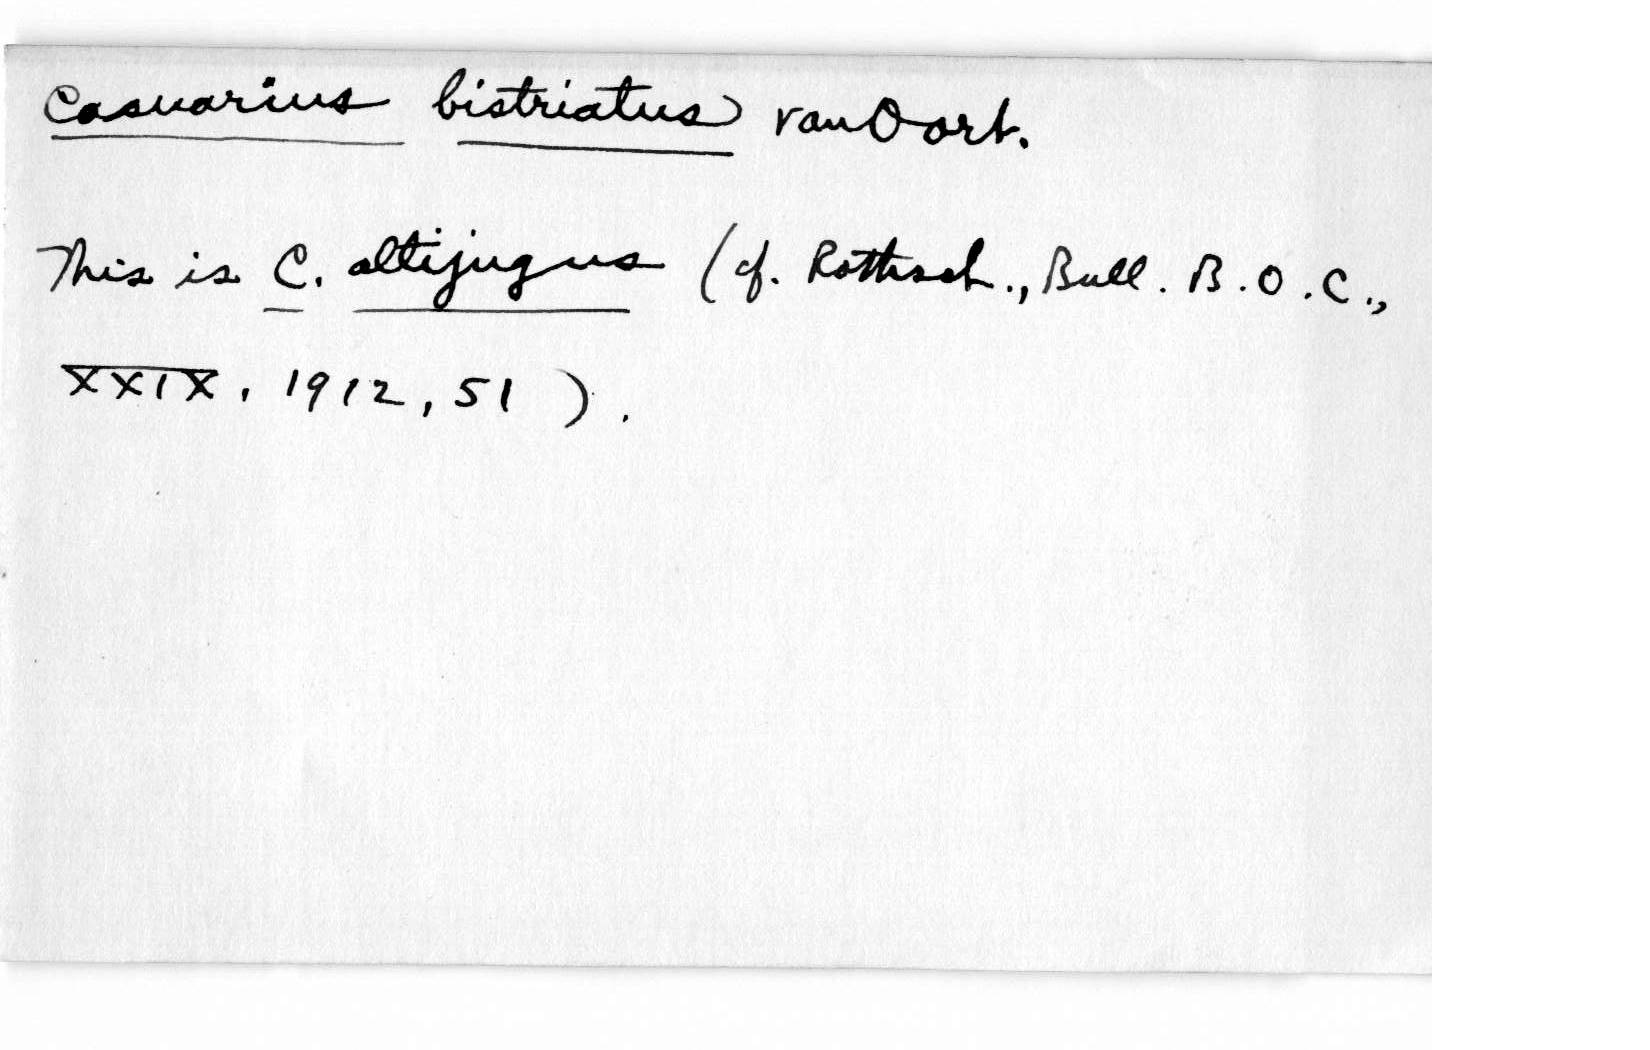 Casuarius bistriatus van Oort.
This is C. altijugus (cf. Rothsch., Bull. B.O.C.,
XXIX, 1912, 51).